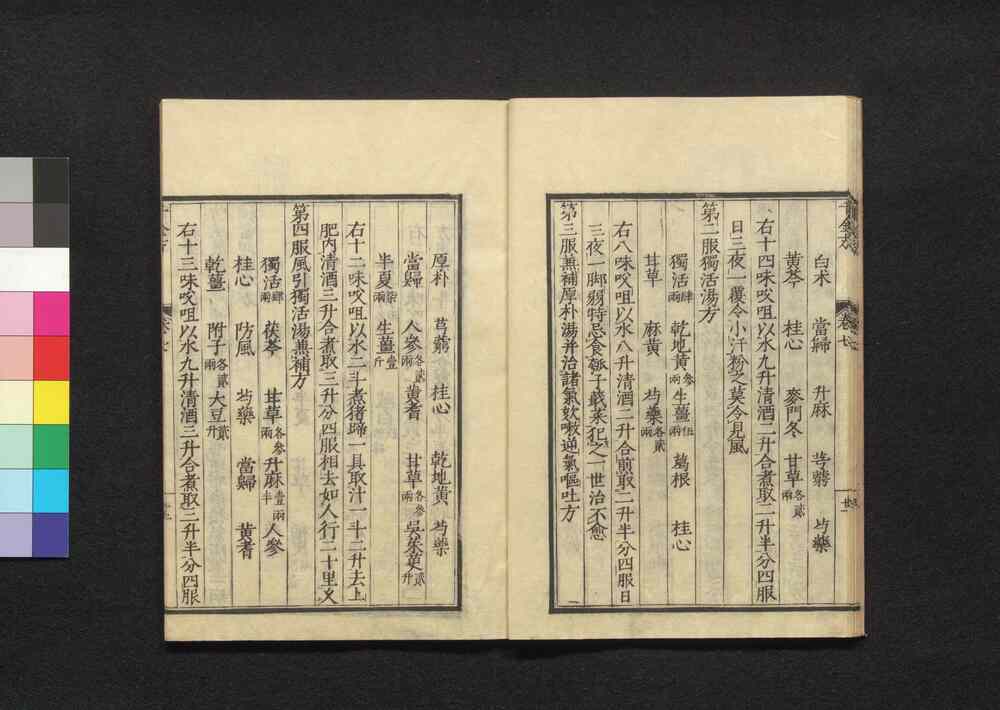 白术 當歸 升麻 芎藭 芍藥
黄芩 桂心 麥門冬 甘草各貳兩
右十四味㕮咀以水九升清酒二升合煮取二升半分四服
日三夜一覆令小汗粉之莫令見風
第二服獨活湯方
獨活肆兩 乾地黄參兩 生薑伍兩 葛根 桂心
甘草 麻黄 芍藥各貳兩
右八味㕮咀以水八升清酒二升合煎取二升半分四服日
三夜一脚弱特忌食瓠子蕺菜犯之一世治不愈
第三服兼補厚朴湯并治諸氣欬嗽逆氣嘔吐方
厚朴 芎藭 桂心 乾地黄 芍藥
當歸 人參各貳兩 黄耆 甘草各參兩 吳茱萸貳升
半夏柒兩 生薑壹斤
右十二味㕮咀以水二斗煮猪蹄一具取汁一斗二升去上
肥内清酒三升合煮取三升分四服相去如人行二十里久
第四服風引獨活湯兼補方
獨活肆兩 茯苓 甘草各參兩 升麻壹兩半 人參
桂心 防風 芍藥 當歸 黄耆
乾薑 附子各貳兩 大豆貳升
右十三味㕮咀以水九升清酒三升合煮取三升半分四服